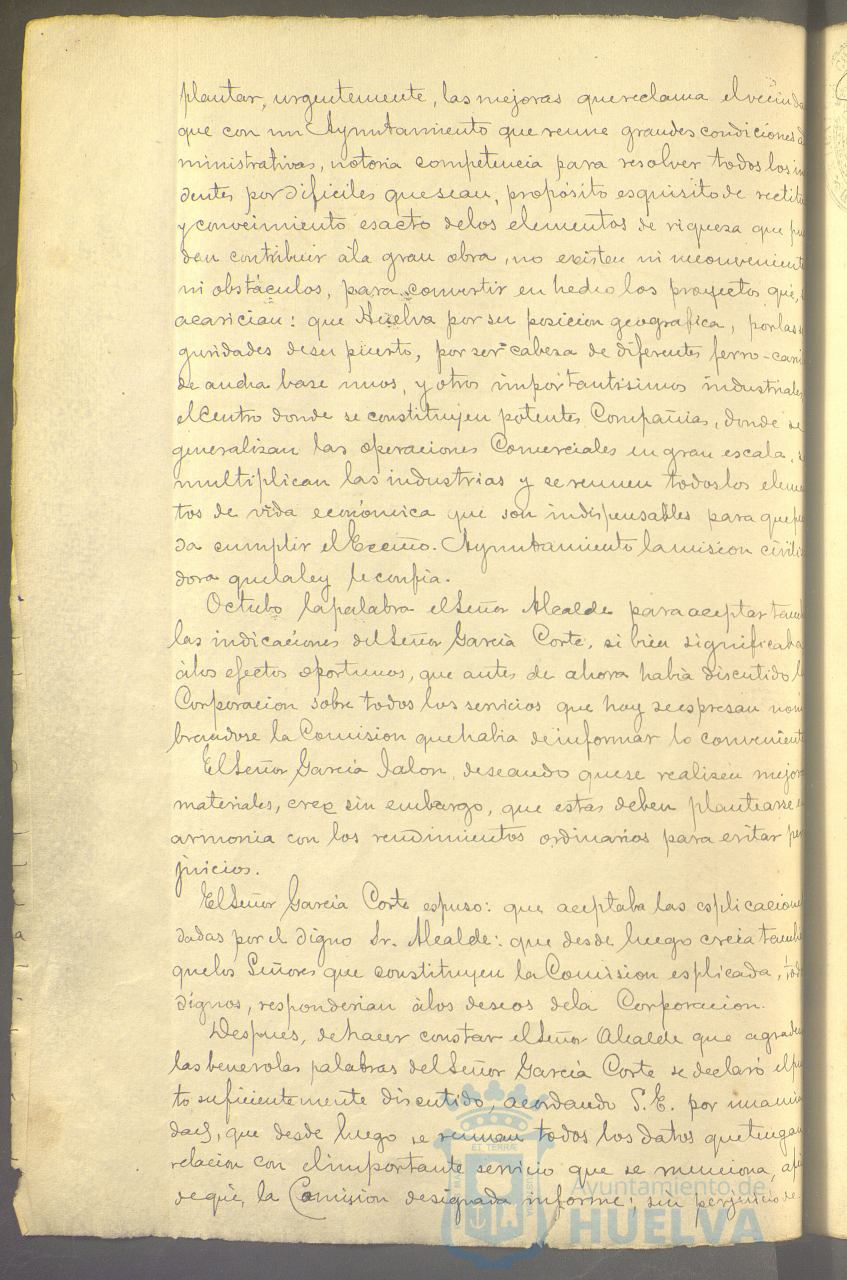 plantar, urgentemente, las mejoras que reclama el vecinda
que con un Ayuntamiento que reune grandes condiciones a
ministrativas, notoria competencia para resolver todos los in
dentes por dificiles que sean, propósito esquisito de rectitu
y conocimiento esacto de los elementos de riquesa que pu
den contribuir á la gran obra, no existen ni inconveniente
ni obstáculos, para convertir en hecho los proyectos que, s
acarician: que Huelva por su posicion geografica, por las s
guridades de su puerto, por ser cabeza de diferentes ferro-carri
de ancha base unos, y otros importantisimos industriales
el centro donde se constituyen potentes Compañias, donde se
generalizan las operaciones Comerciales en gran escala, s
multiplican las industrias y se reunen todos los eleme
tos de vida económica que son indispensables para que pu
da cumplir el Excmo. Ayuntamiento la mision civili
dora que la ley le confia.
Octubo la palabra el Señor Alcalde para aceptar tamb
las indicaciones del Señor Garcia Corte, si bien significaba
á los efectos oportunos, que antes de ahora habia discutido l
Corporacion sobre todos los servicios que hoy se espresan nom
brandose la Comision que habia de informar lo conveniente
El Señor Garcia Jalon, deseando que se realisen mejor
materiales, cree sin embargo, que estas deben plantearse e
armonia con los rendimientos ordinarios para evitar per
juicios.
El Señor Garcia Corte espuso: que aceptaba las esplicacione
dadas por el digno Sr. Alcalde: que desde luego creia tambi
que los Señores que constituyen la Comision esplicada, tod
dignos, responderian á los deseos de la Corporacion.
Despues, de hacer constar el Señor Alcalde que agrade
las benevolas palabras del Señor Garcia Corte se declaró el pu
to suficientemente discutido, acordando S.E. por unanimi
dad, que desde luego se reunan todos los datos que tengan
relacion con el importante servicio que se menciona, á fi
de que, la Comision designada informe; sin perjuicio de
Ayuntamiento de
HUELVA